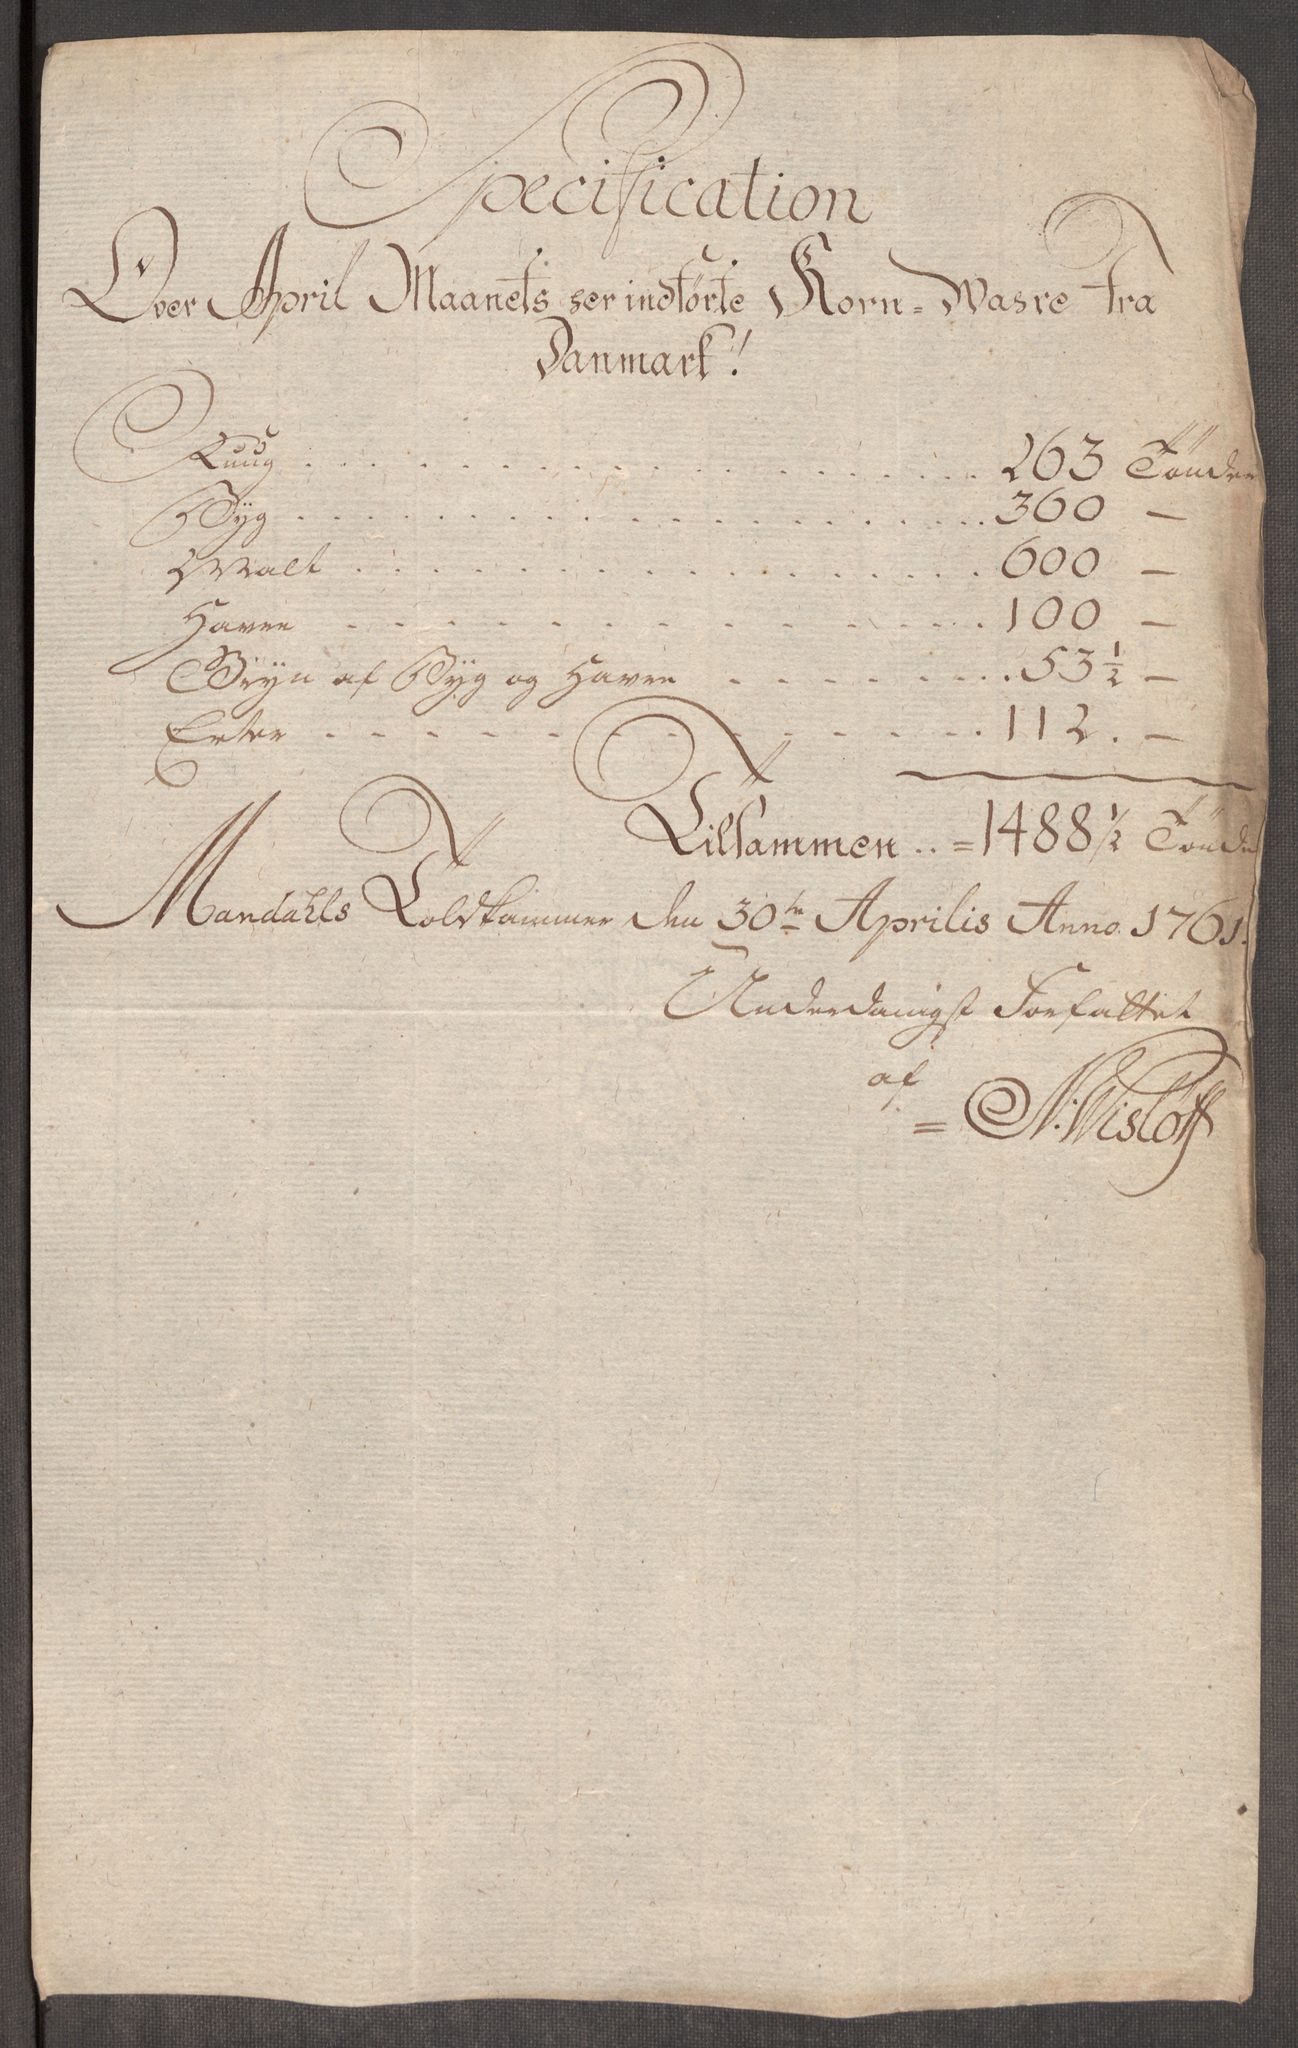 Specification
Over April Maanets her indførte Korn-Wahre fra
Danmark!
Ruug . . . . . . . . . . 263 Tönder
Byg . . . . . . . . . . 360 —
Malt . . . . . . . . . . 600 —
Havre . . . . . . . . . . 100 —
Gryn af Byg og Havre . . . . . . 53 1/2 —
Erter . . . . . . . . . . 112. —
Tilsammen .. = 1488 1/2 Tönder
Mandahls Toldkammer den 30te Aprilis Anno 1761.
Underdanigst Forfattet
af
= N: Wisløff